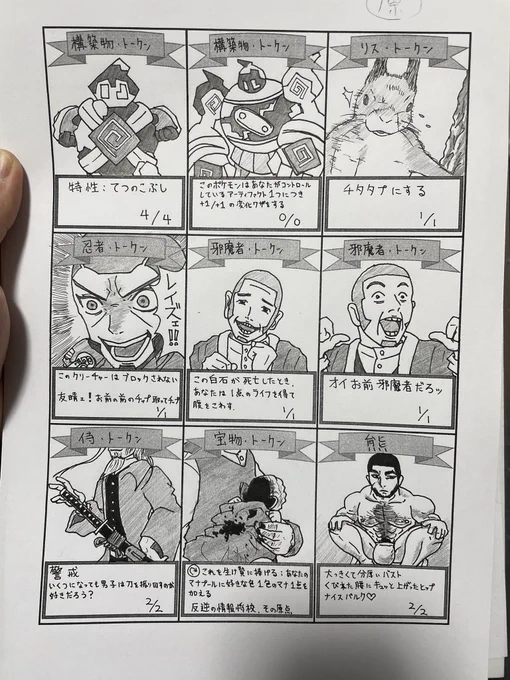 原
構築物・トークン
特性：てつのこぶし
4/4
構築物・トークン
このポケモンはあなたがコントロール
しているアーティファクト1つにつき
+1/+1の変化ワザをする
0/0
リス・トークン
チタタプにする
1/1
忍者・トークン
レイズェ!!
このクリーチャーはブロックされない
友晴ェ！お前の前のチップ取ってチョ
1/1
邪魔者・トークン
この白石が死亡したとき、
あなたは1点のライフを得て
腹をこわす
1/1
邪魔者・トークン
オイお前 邪魔者だろッ
1/1
侍・トークン
警戒
いくつになっても男子は刀を振り回すのが
好きだろう？
2/2
宝物・トークン
これを生け贄に捧げる：あなたの
マナプールに好きな色1色のマナ1点を
加える
反逆の情報将校、その原点
熊
大っきくて分厚いバスト
くびれた腰にキュッと上がったヒップ
ナイスバルク♡
2/2